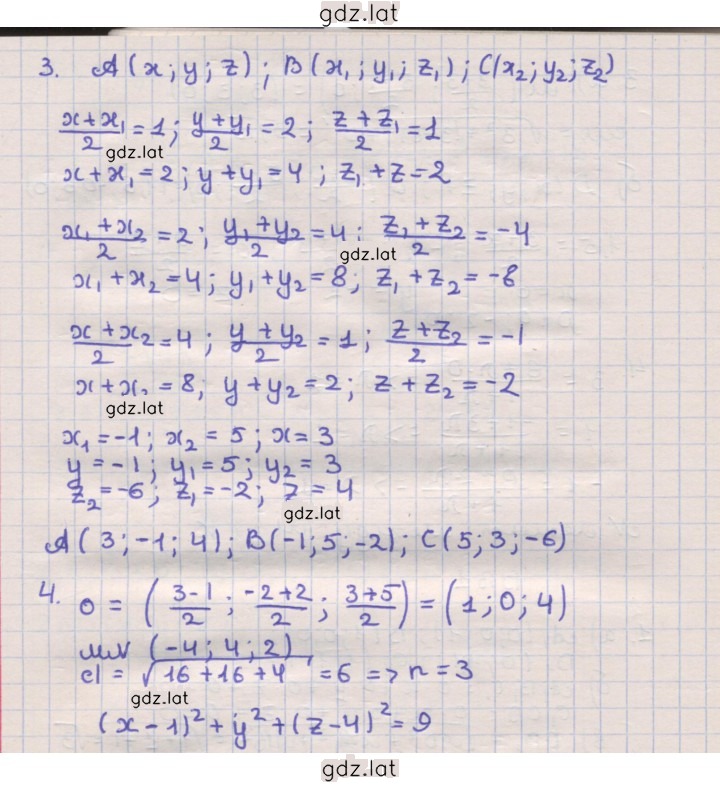 gdz.lat
3. A(x; y; z); B(x₁; y₁; z₁); C(x₂; y₂; z₂)
(x+x₁)/2 = 1; (y+y₁)/2 = 2; (z+z₁)/2 = 1
gdz.lat
x+x₁ = 2; y+y₁ = 4; z₁+z = 2
(x₁+x₂)/2 = 2; (y₁+y₂)/2 = 4; (z₁+z₂)/2 = -4
gdz.lat
x₁+x₂ = 4; y₁+y₂ = 8; z₁+z₂ = -8
(x+x₂)/2 = 4; (y+y₂)/2 = 1; (z+z₂)/2 = -1
x+x₂ = 8, y+y₂ = 2; z+z₂ = -2
gdz.lat
x₁ = -1; x₂ = 5; x = 3
y = -1; y₁ = 5; y₂ = 3
z₂ = -6; z₁ = -2; z = 4
gdz.lat
A(3; -1; 4); B(-1; 5; -2); C(5; 3; -6)
4. O = ((3-1)/2; (-2+2)/2; (3+5)/2) = (1; 0; 4)
MN (-4; 4; 2)
d = √(16+16+4) = 6 => r = 3
gdz.lat
(x-1)² + y² + (z-4)² = 9
gdz.lat